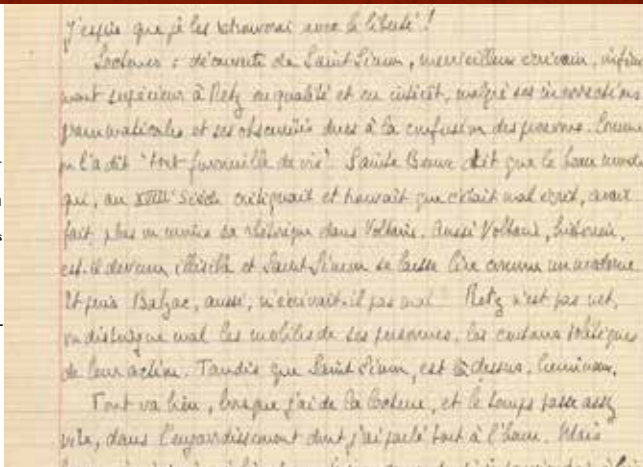 J'espère que je les retrouverai avec la liberté !
Lectures : découverte de Saint Simon, merveilleux écrivain, infini
ment supérieur à Retz en qualité et en intérêt, malgré ses incorrections
grammaticales et ses obscurités dues à la confusion des pronoms. Comme
on l'a dit "tout fourmille de vie". Sainte Beuve dit que le beau monde
qui, au XVIIIe siècle critiquait et trouvait que c'était mal écrit, avait
fait plus ou moins sa rhétorique dans Voltaire. Aussi Voltaire, historien,
est-il devenu illisible et Saint Simon se laisse lire comme un moderne.
Et puis Balzac, aussi, n'écrivait-il pas mal Retz n'est pas net,
on distingue mal les mobiles de ses personnes, les courants politiques
de leur action. Tandis que Saint Simon, est là dessus, lumineux.
Tout va bien, lorsque j'ai de la lecture, et le temps passe assez
vite, dans l'engourdissement dont j'ai parlé tout à l'heure. Mais